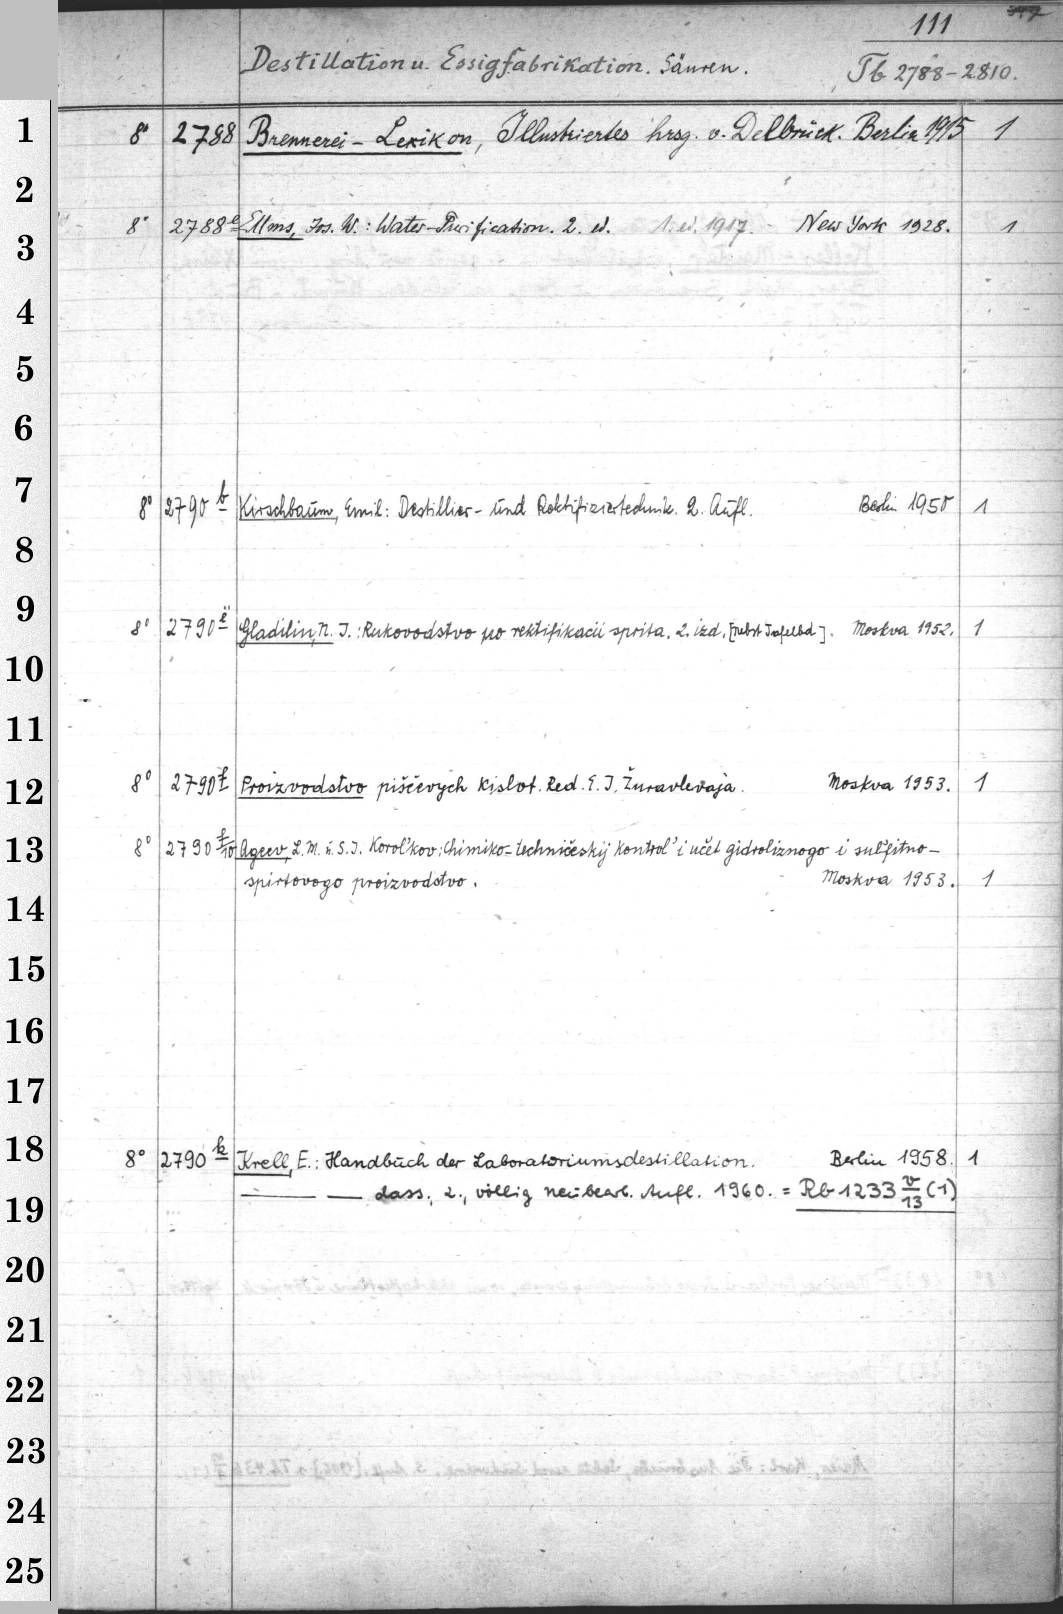 111
Destillation u. Essigfabrikation. Säuren.
Tb 2788-2810.
1
8° 2788 Brennerei-Lexikon, Illustriertes hrsg. v. Delbrück. Berlin 1915 1
2
8° 2788 e Ellms, Jos. W.: Water-Purification. 2. ed. 1. ed. 1917. - New York 1928. 1
3
4
5
6
7
8° 2790 b Kirschbaum, Emil: Destillier- und Rektifiziertechnik. 2. Aufl. Berlin 1950 1
8
9
8° 2790 Gladilin, N. I.: Rukovodstvo po rektifikacii sprita. 2. izd. [nebst Tafelbd]. Moskva 1952. 1
10
11
12
8° 2790 f Proizvodstvo piščevych kislot. Red. E. I. Žuravlevaja. Moskva 1953. 1
13
8° 2790 f/10 Ageev, L. M. u. S. I. Korol'kov: Chimiko-techničeskij kontrol' i učet gidroliznogo i sulfitno-
spirtovogo proizvodstvo. Moskva 1953. 1
14
15
16
17
18
8° 2790 k Krell, E.: Handbuch der Laboratoriumsdestillation. Berlin 1958. 1
— — dass., 2., völlig neubearb. Aufl. 1960. = Rb 1233 v/13 (1)
19
20
21
22
23
24
25